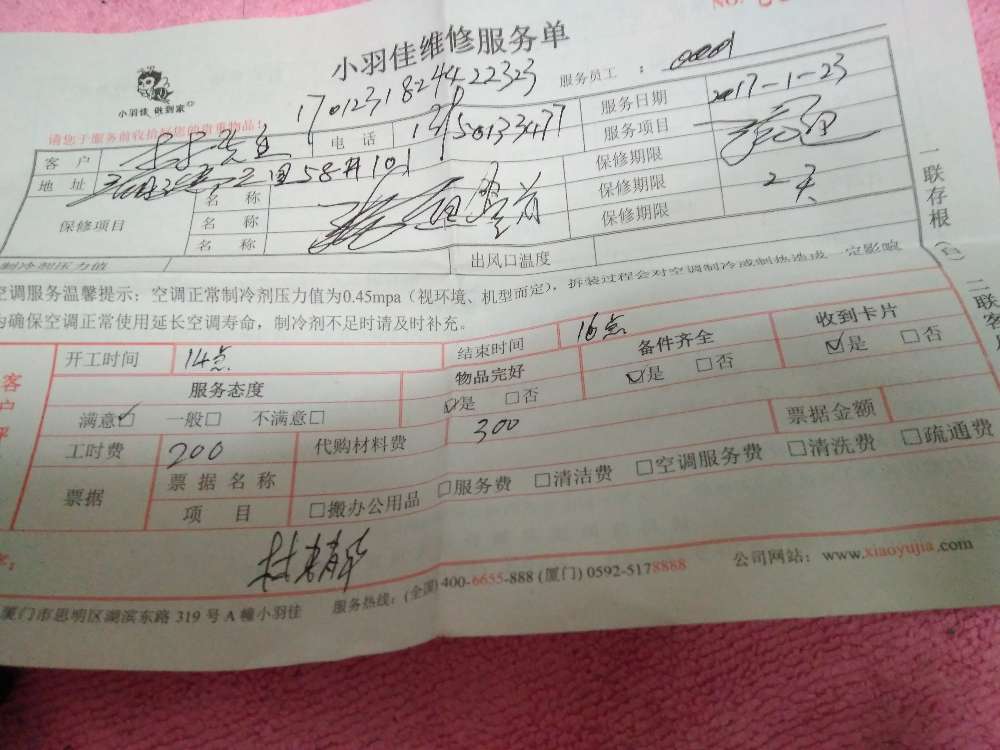 NO.
小羽佳维修服务单
小羽佳 做到家
17012318244422323
服务员工 :
请您于服务前收拾好您的贵重物品!
服务日期 2017-1-23
客户 电话
服务项目
地址 58#101
保修期限
保修项目 名称
名称 保修期限 2天
名称 保修期限
制冷剂压力值 出风口温度
空调服务温馨提示:空调正常制冷剂压力值为0.45mpa(视环境、机型而定),拆装过程会对空调制冷或制热造成一定影响
为确保空调正常使用延长空调寿命,制冷剂不足时请及时补充。
开工时间 14点 结束时间 16点
服务态度 物品完好 备件齐全 收到卡片
满意☑ 一般□ 不满意□ ☑是 □否 ☑是 □否 ☑是 □否
工时费 200 代购材料费 300 票据金额
票据 票据名称
项目 □搬办公用品 □服务费 □清洁费 □空调服务费 □清洗费 □疏通费
厦门市思明区湖滨东路 319 号 A 幢小羽佳 服务热线:(全国)400-6655-888 (厦门) 0592-5178888 公司网站:www.xiaoyujia.com
一联存根
二联客
客户